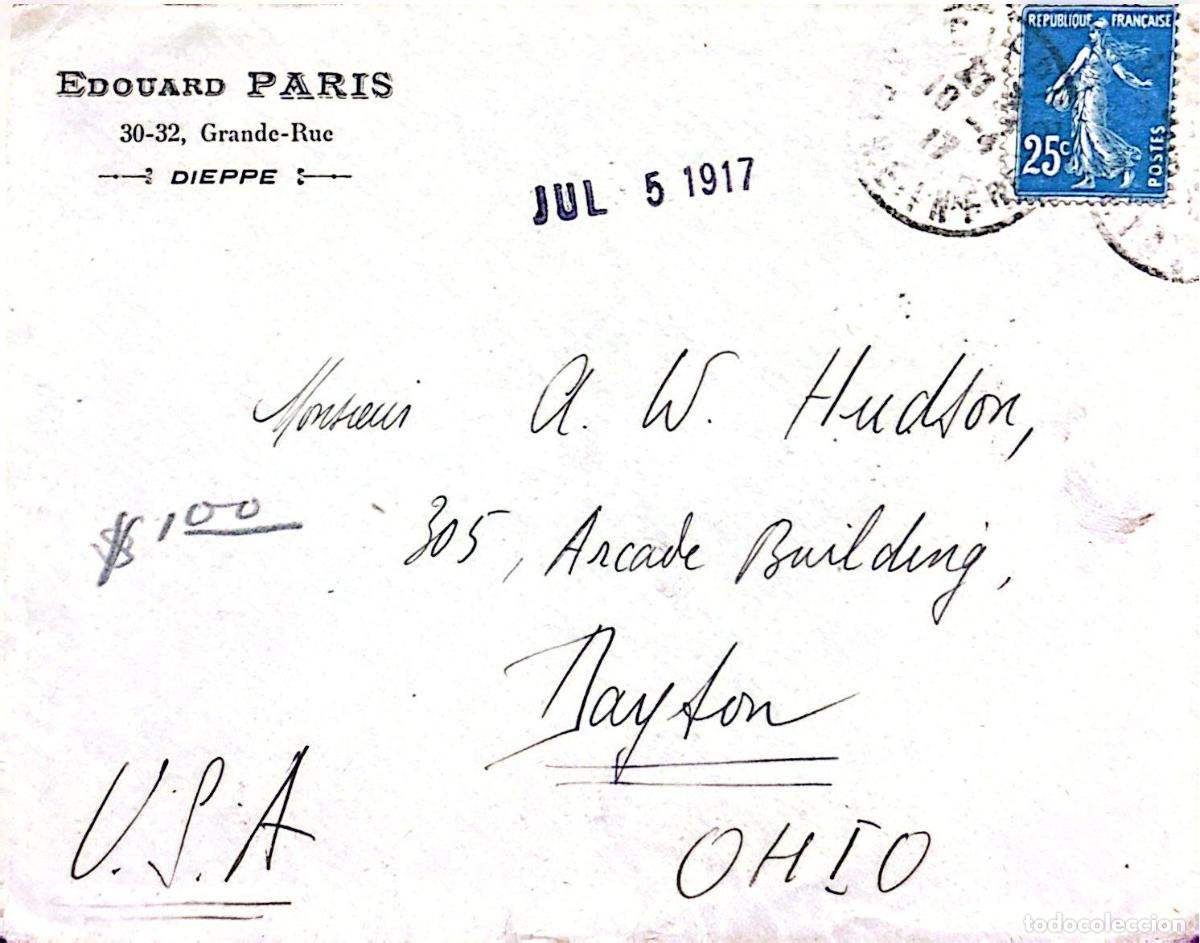 EDOUARD PARIS
30-32, Grande-Rue
DIEPPE
JUL 5 1917
REPUBLIQUE FRANÇAISE
25c
POSTES
Monsieur A. W. Hudson,
$1.00
305, Arcade Building,
Dayton
U.S.A
OHIO
todocoleccion